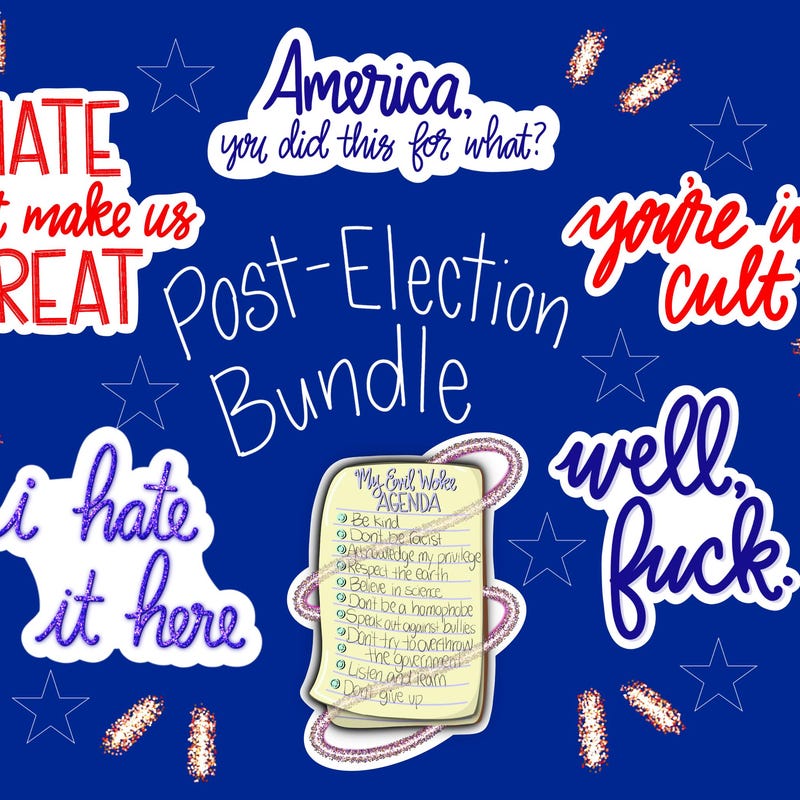 America,
you did this for what?
HATE
t make us
REAT
you're in
cult
Post-Election
Bundle
i hate
it here
My Evil Woke
AGENDA
Be kind
Don't be facist
Acknowledge my privilege
Respect the earth
Believe in science
Don't be a homophobe
Speak out against bullies
Don't try to overthrow
the government
Listen and learn
Don't give up
well,
fuck.